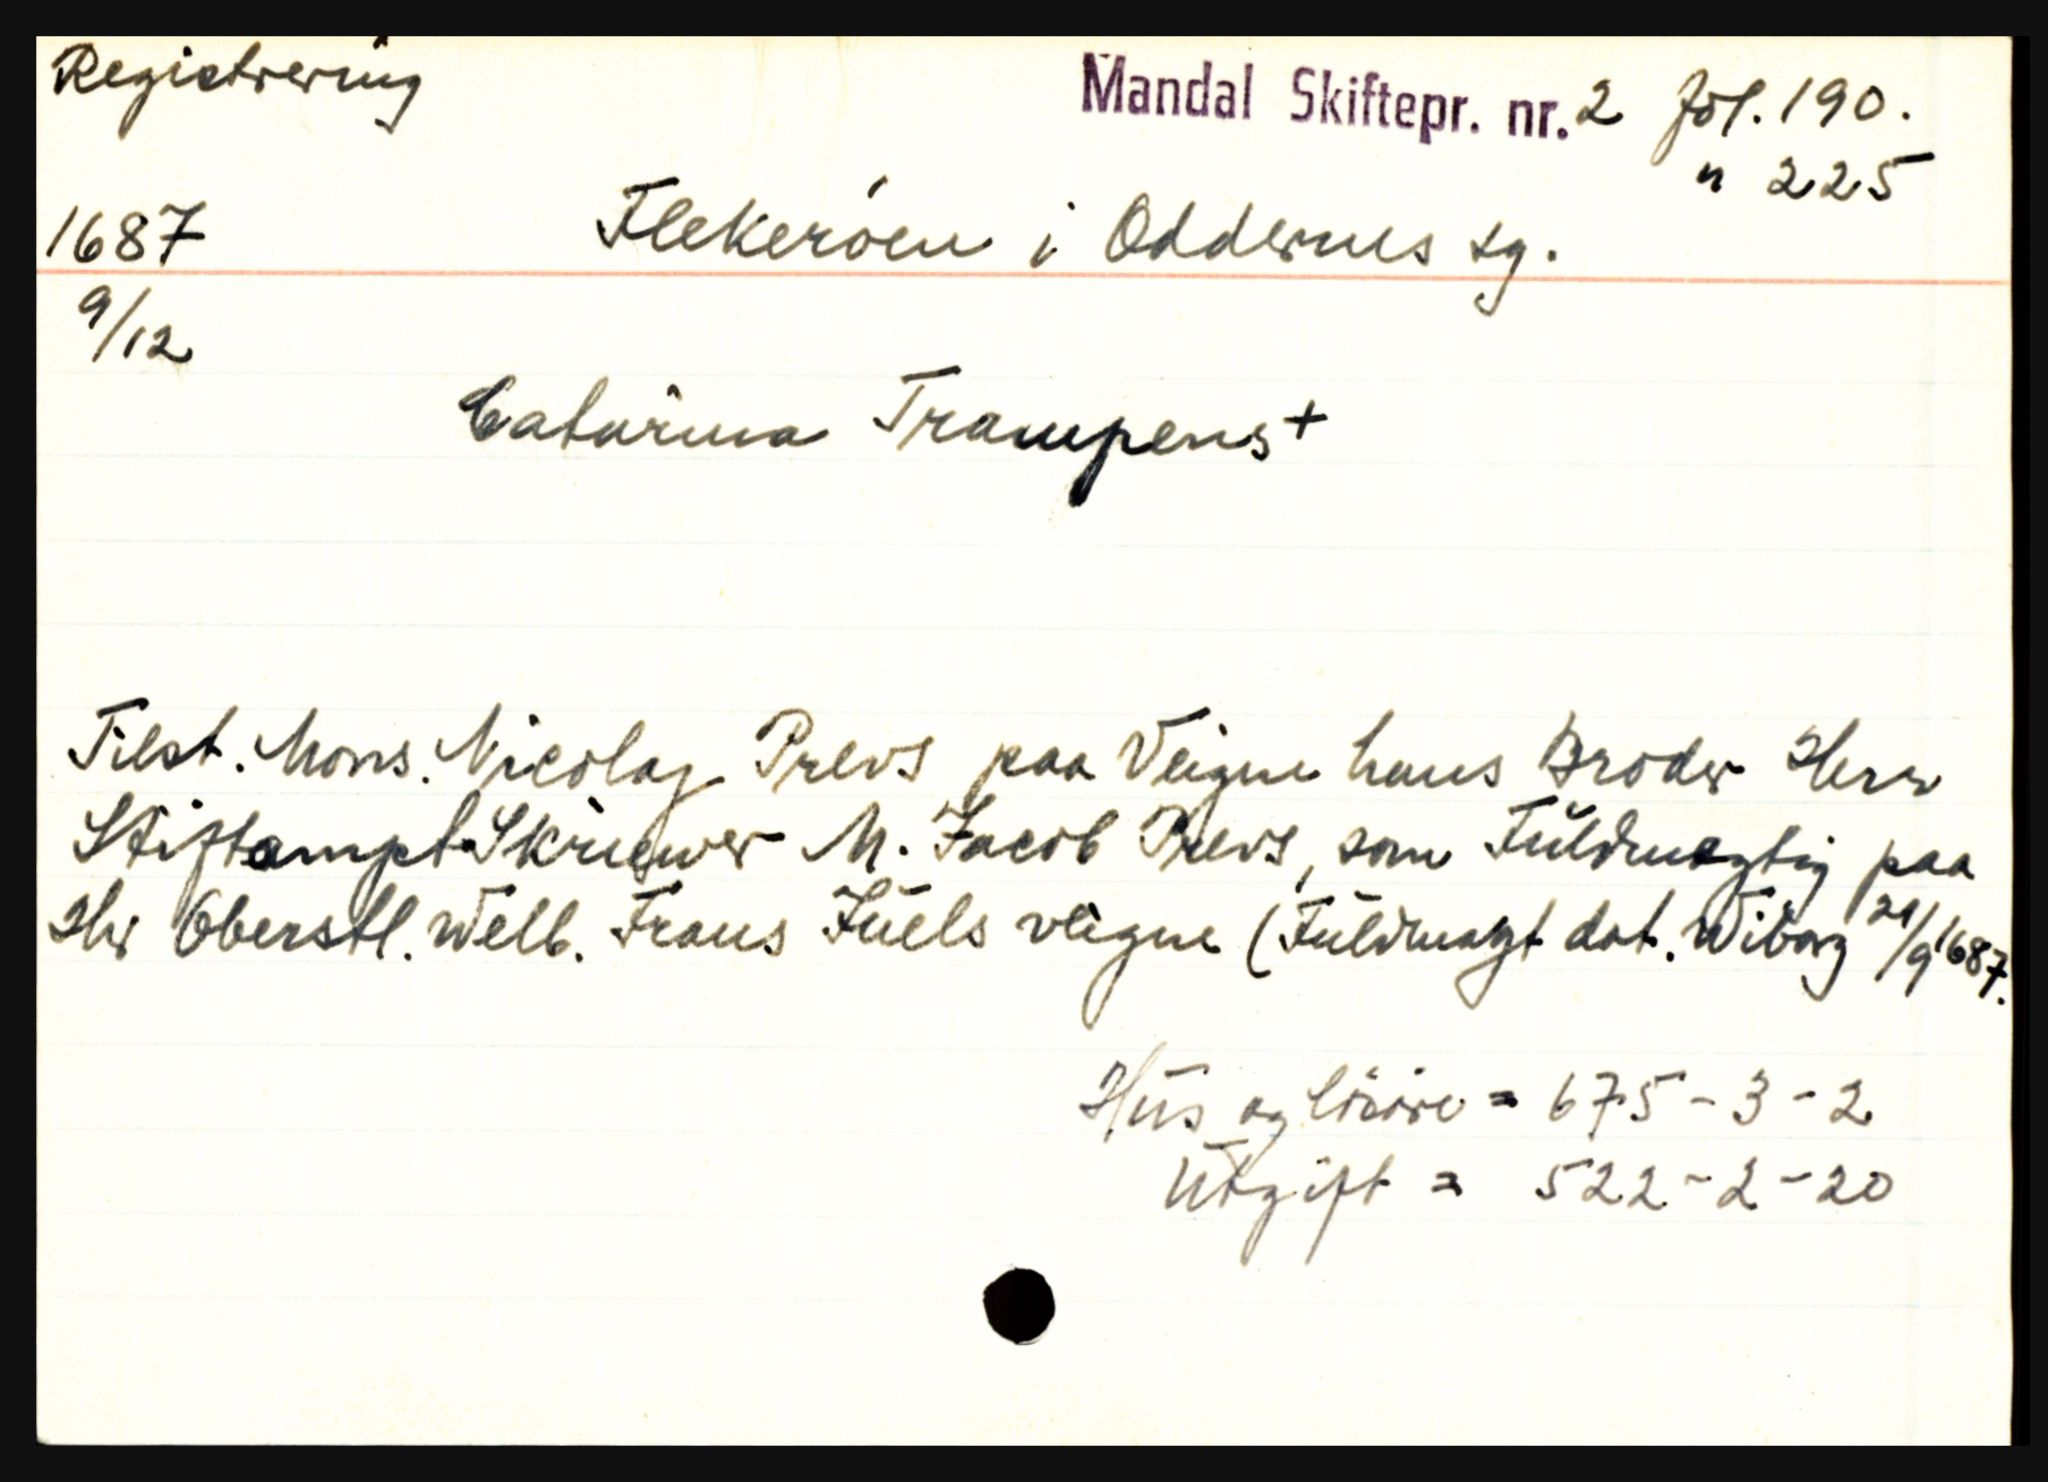 Registrering
Mandal Skiftepr. nr. 2 fol. 190.
" 225
1687 Flekeröen i Oddernes sg.
9/12
Catarina Trampens +
Tilst. Mons. Nicolaj Prevs paa Veigne hans Broder Herr
Stiftampt-Skriewer M. Jacob Prevs, som Fuldmegtig paa
Hr Oberstl. Welb. Frans Juels veigne (Fuldmagt dat. Wiborg 21/9 1687.
Hus og lösöre = 675 - 3 - 2
Utgift = 522 - 2 - 20